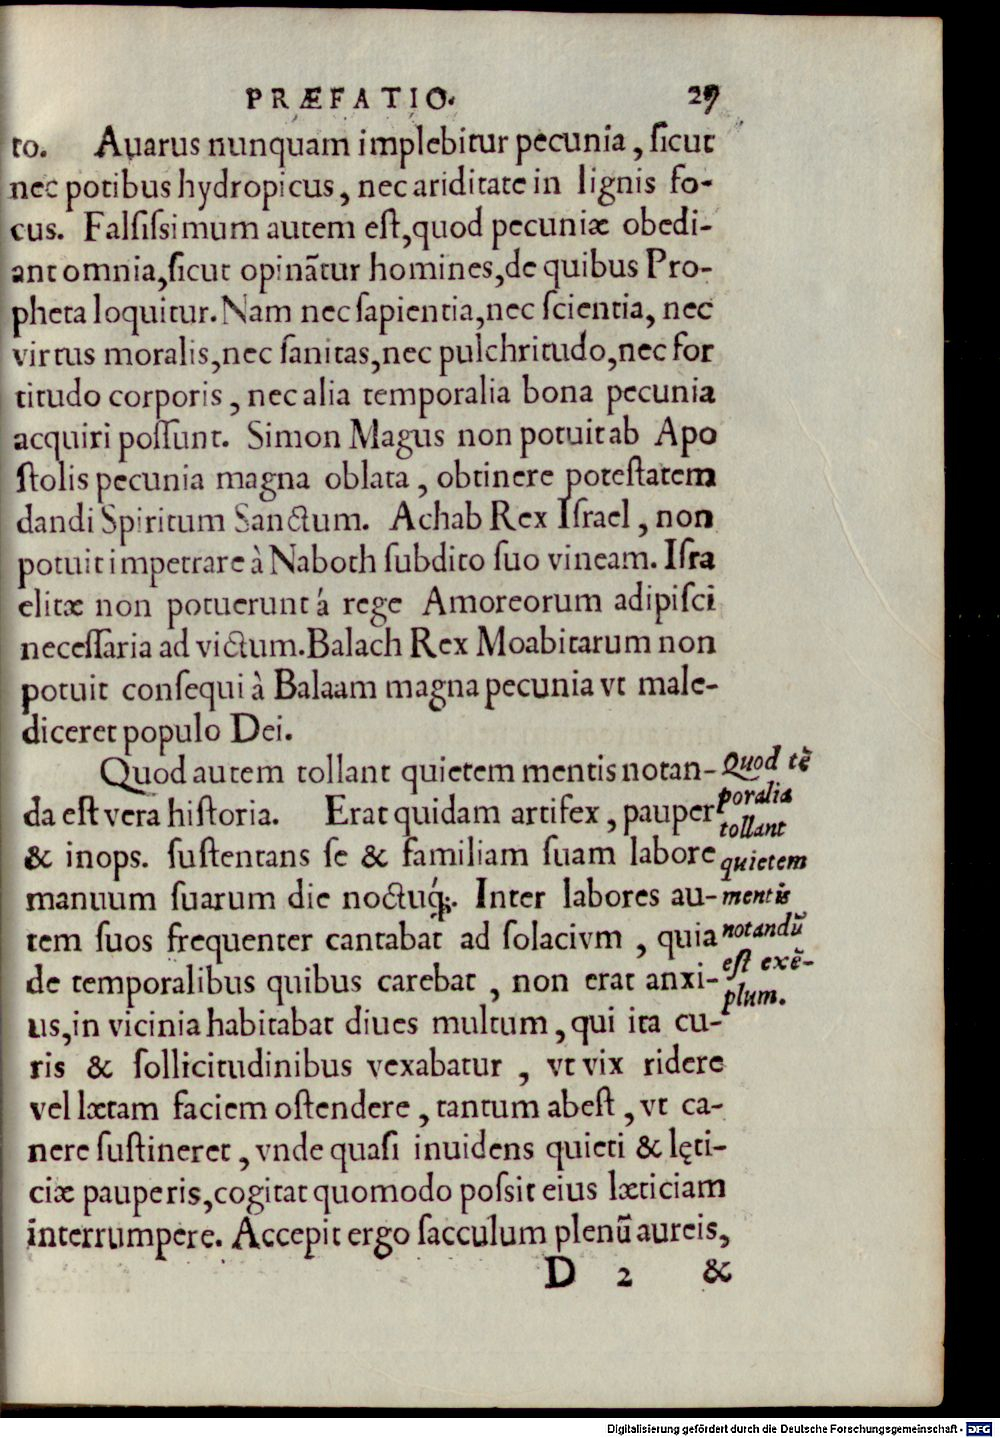 PRÆFATIO. 27
to. Auarus nunquam implebitur pecunia, ſicut
nec potibus hydropicus, nec ariditate in lignis fo-
cus. Falſiſsimum autem eſt, quod pecuniæ obedi-
ant omnia, ſicut opinãtur homines, de quibus Pro-
pheta loquitur. Nam nec ſapientia, nec ſcientia, nec
virtus moralis, nec ſanitas, nec pulchritudo, nec for
titudo corporis, nec alia temporalia bona pecunia
acquiri poſſunt. Simon Magus non potuit ab Apo
ſtolis pecunia magna oblata, obtinere poteſtatem
dandi Spiritum Sanctum. Achab Rex Iſrael, non
potuit impetrare à Naboth ſubdito ſuo vineam. Iſra
elitæ non potuerunt á rege Amoreorum adipiſci
neceſſaria ad victum. Balach Rex Moabitarum non
potuit conſequi à Balaam magna pecunia vt male-
diceret populo Dei.
Quod autem tollant quietem mentis notan-
da eſt vera hiſtoria. Erat quidam artifex, pauper
& inops. ſuſtentans ſe & familiam ſuam labore
manuum ſuarum die noctuq́;. Inter labores au-
tem ſuos frequenter cantabat ad ſolacivm, quia
de temporalibus quibus carebat, non erat anxi-
us, in vicinia habitabat diues multum, qui ita cu-
ris & ſollicitudinibus vexabatur, vt vix ridere
vel lætam faciem oſtendere, tantum abeſt, vt ca-
nere ſuſtineret, vnde quaſi inuidens quieti & lęti-
ciæ pauperis, cogitat quomodo poſsit eius læticiam
interrumpere. Accepit ergo ſacculum plenũ aureis,
D 2 &
Quod tẽ
poralia
tollant
quietem
mentis
notandũ
eſt exẽ-
plum.
Digitalisierung gefördert durch die Deutsche Forschungsgemeinschaft - DFG